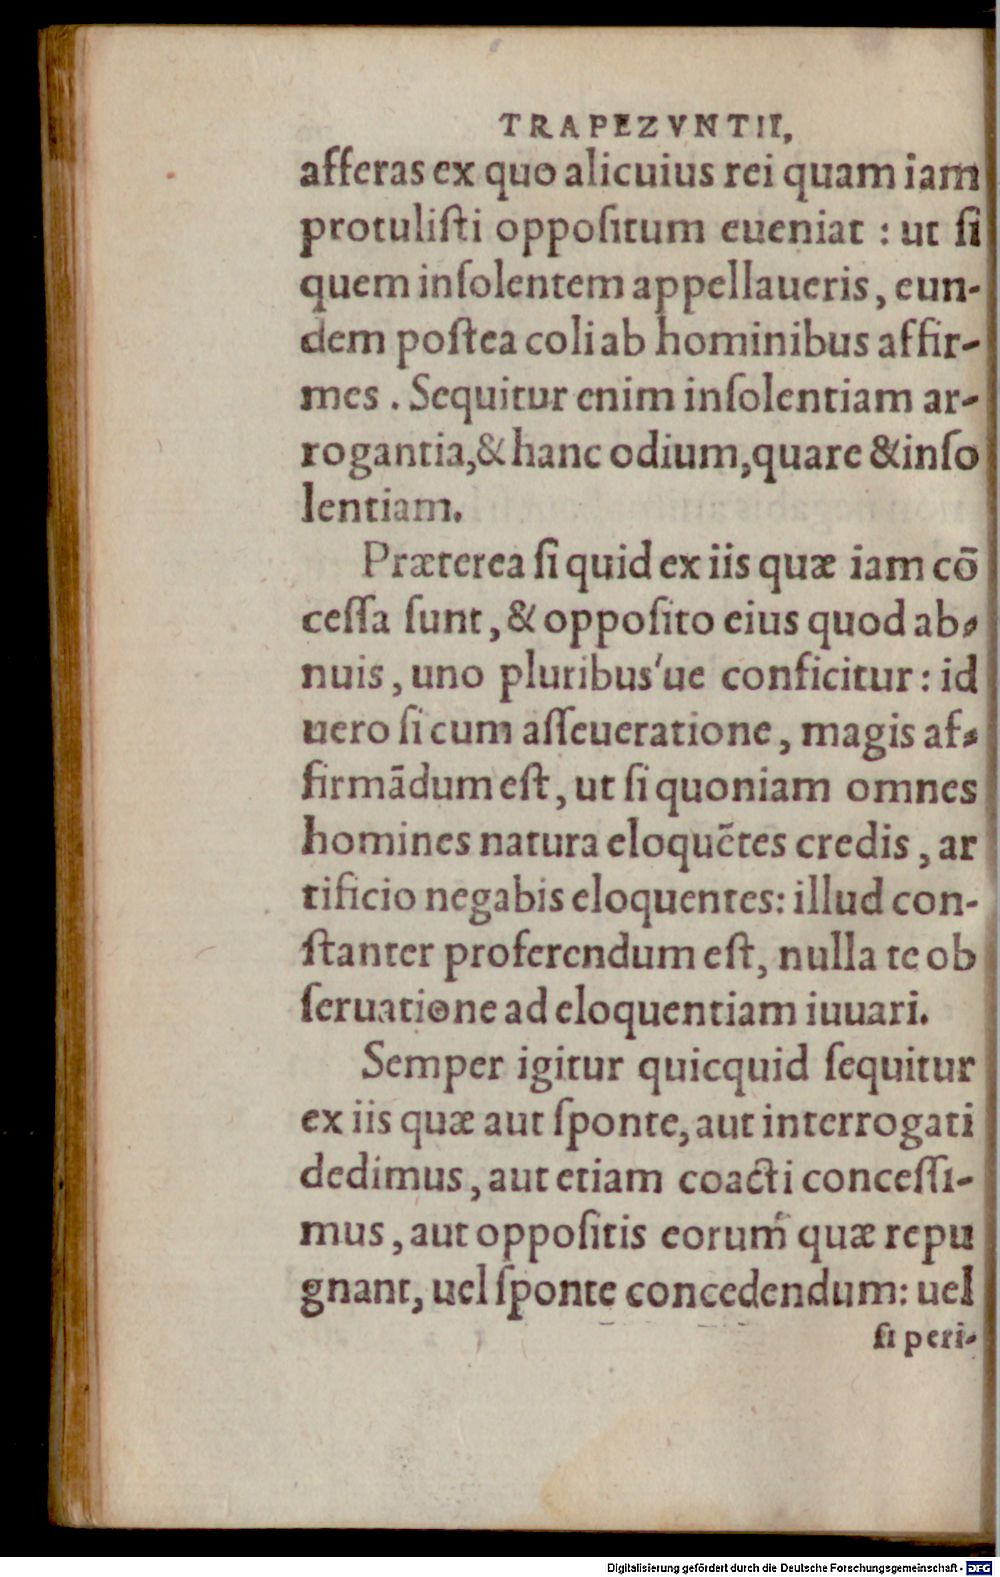 TRAPEZVNTII,
afferas ex quo alicuius rei quam iam
protuliſti oppoſitum eueniat : ut ſi
quem inſolentem appellaueris, eun-
dem poſtea coli ab hominibus affir-
mes. Sequitur enim inſolentiam ar-
rogantia, & hanc odium, quare & inſo
lentiam.
Præterea ſi quid ex iis quæ iam cō
ceſſa ſunt, & oppoſito eius quod ab-
nuis, uno pluribus'ue conficitur: id
uero ſi cum aſſeueratione, magis af-
firmādum eſt, ut ſi quoniam omnes
homines natura eloquētes credis, ar
tificio negabis eloquentes: illud con-
ſtanter proferendum eſt, nulla te ob
ſeruatione ad eloquentiam iuuari.
Semper igitur quicquid ſequitur
ex iis quæ aut ſponte, aut interrogati
dedimus, aut etiam coacti conceſſi-
mus, aut oppoſitis eorum quæ repu
gnant, uel ſponte concedendum: uel
ſi peri-
Digitalisierung gefördert durch die Deutsche Forschungsgemeinschaft - DFG